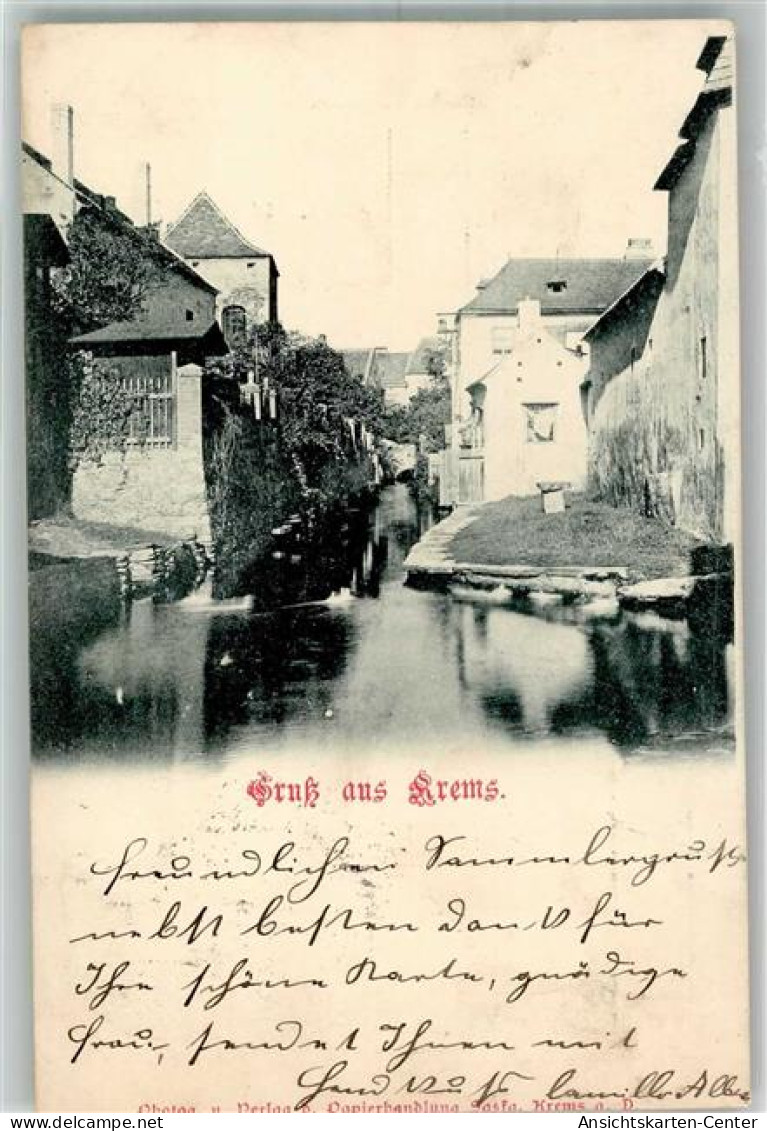 Gruß aus Krems.
freundlichen Sammlergruß
nebst besten Dank für
Ihre schöne Karte, gnädige
Frau, sendet Ihnen mit
Handkuss Camillo
Photog. u. Verlag v. Papierhandlung Krems a. D.
Ansichtskarten-Center